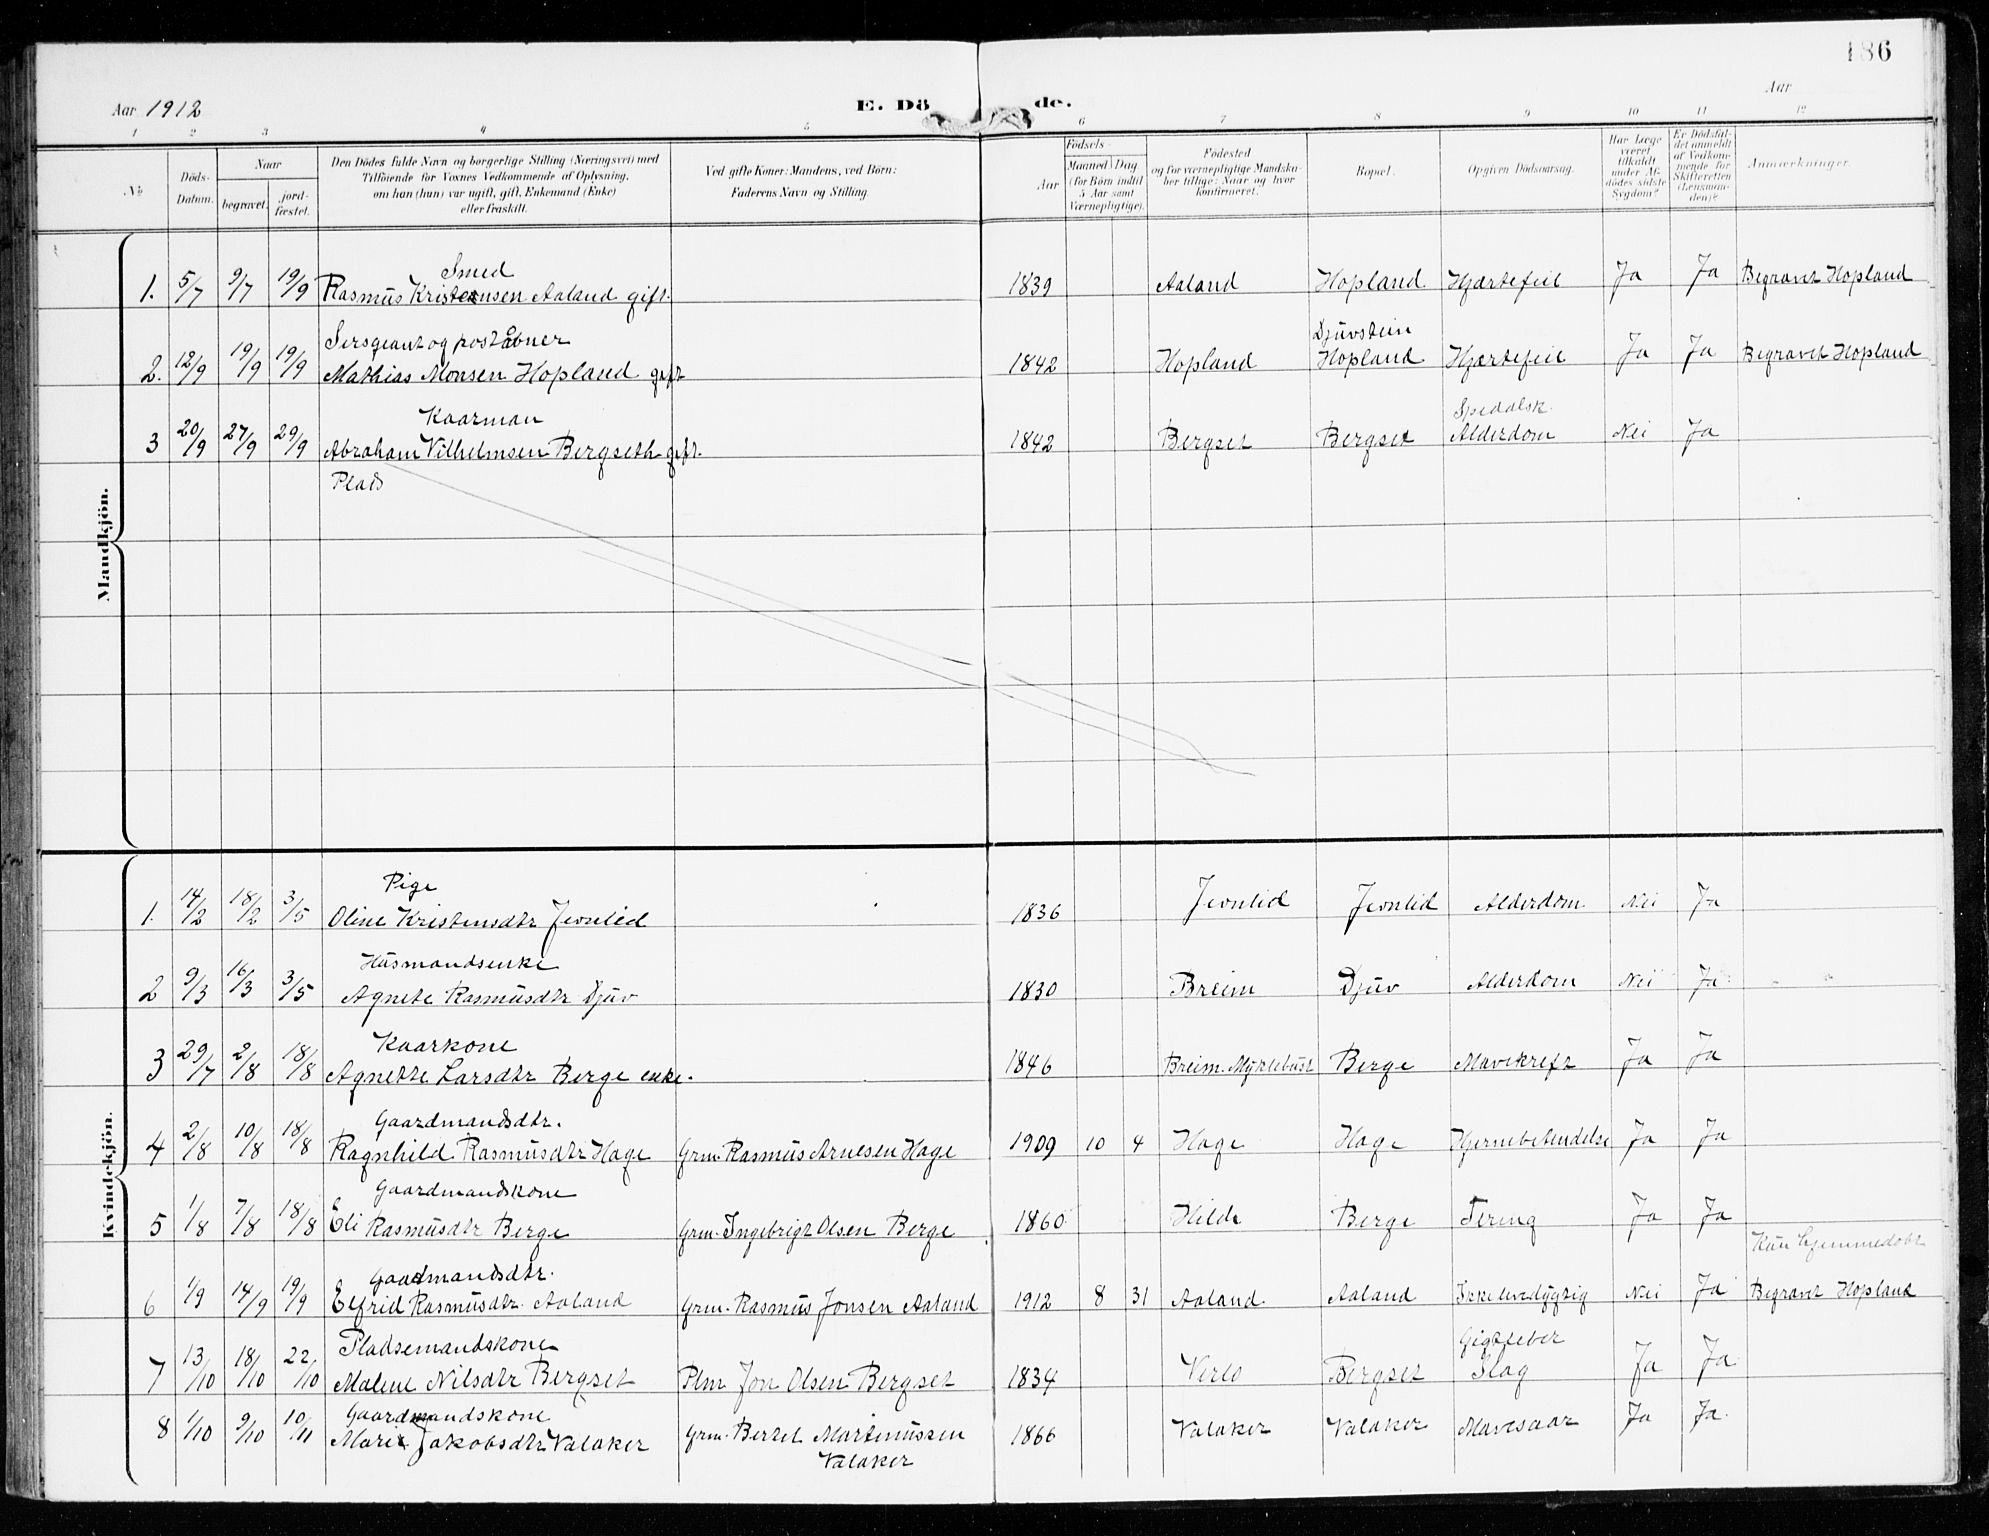 186
Aar 1912
E. Dö de.
Aar
1 2 3 4 5 6 7 8 9 10 11 12
№
Döds-Datum.
Naar
begravet.
jord-fæstet.
Den Dödes fulde Navn og borgerlige Stilling (Næringsvei) med
Tilföiende for Voxnes Vedkommende af Oplysning,
om han (hun) var ugift, gift, Enkemand (Enke)
eller fraskilt.
Ved gifte Koner: Mandens, ved Börn:
Faderens Navn og Stilling
Födsels-
Aar
Maaned Dag
(for Börn indtil
5 Aar samt
Værnepligtige).
Födested
og for værnepligtige Mandska-
ber tillige: Naar og hvor
konfirmeret.
Bopæl.
Opgiven Dödsaarsag.
Har Læge
været
tilkaldt
under Af-
dödes sidste
Sygdom?
Er Dödsfal-
det anmeldt
af Vedkom-
mende for
Skifteretten
(Lensman-
den)?
Anmærkninger.
Mandkjön.
Smed
1. 5/7 9/7 19/9 Rasmus Kristensen Aaland gift. 1839 Aaland Hopland Hjærtefeil Ja Ja Begravet Hopland
Sersgeant og poståbner Djuvstein
2. 12/9 19/9 19/9 Mathias Monsen Hopland gift 1842 Hopland Hopland Hjærtefeil Ja Ja Begravet Hopland
Kaarman Spedalsk
3 20/9 27/9 29/9 Abraham Vilhelmsen Bergseth gift. 1842 Bergset Bergset Alderdom Nei Ja
Plads
Kvindekjön.
Pige
1. 14/2 18/2 3/5 Oline Kristensdtr Jevnlid 1836 Jevnlid Jevnlid Alderdom Nei Ja
Husmandsenke
2 9/3 16/3 3/5 Agnete Rasmusdtr Djuv 1830 Breim Djuv Alderdom Nei Ja
Kaarkone
3 29/7 2/8 18/8 Agnette Larsdtr Berge enke. 1846 Breim. Myklebust Berge Mavekreft Ja Ja
Gaardmandsdtr.
4 2/8 10/8 18/8 Ragnhild Rasmusdtr Hage Grm. Rasmus Arnesen Hage 1909 10 4 Hage Hage Hjernebetendelse Ja Ja
Gaardmandskone
5 1/8 7/8 18/8 Eli Rasmusdtr Berge Grm. Ingebrigt Olsen Berge 1860 Hilde Berge Tering Ja Ja
Gaardmandsdtr. Kun hjemmedøbt
6 1/9 14/9 19/9 Elfrid Rasmusdtr. Aaland Grm. Rasmus Jonsen Aaland 1912 8 31 Aaland Aaland Ikke levedygtig Nei Ja Begravet Hopland
Pladsemandskone Gigtfeber
7 13/10 18/10 22/10 Malene Nilsdtr Bergset Plm Jon Olsen Bergset 1834 Verlo Bergset Slag Ja Ja
Gaardmandskone
8 1/10 9/10 10/11 Marie Jakobsdtr Valaker Grm. Bertel Martinussen 1866 Valaker Valaker Mavesaar Ja Ja
Valaker